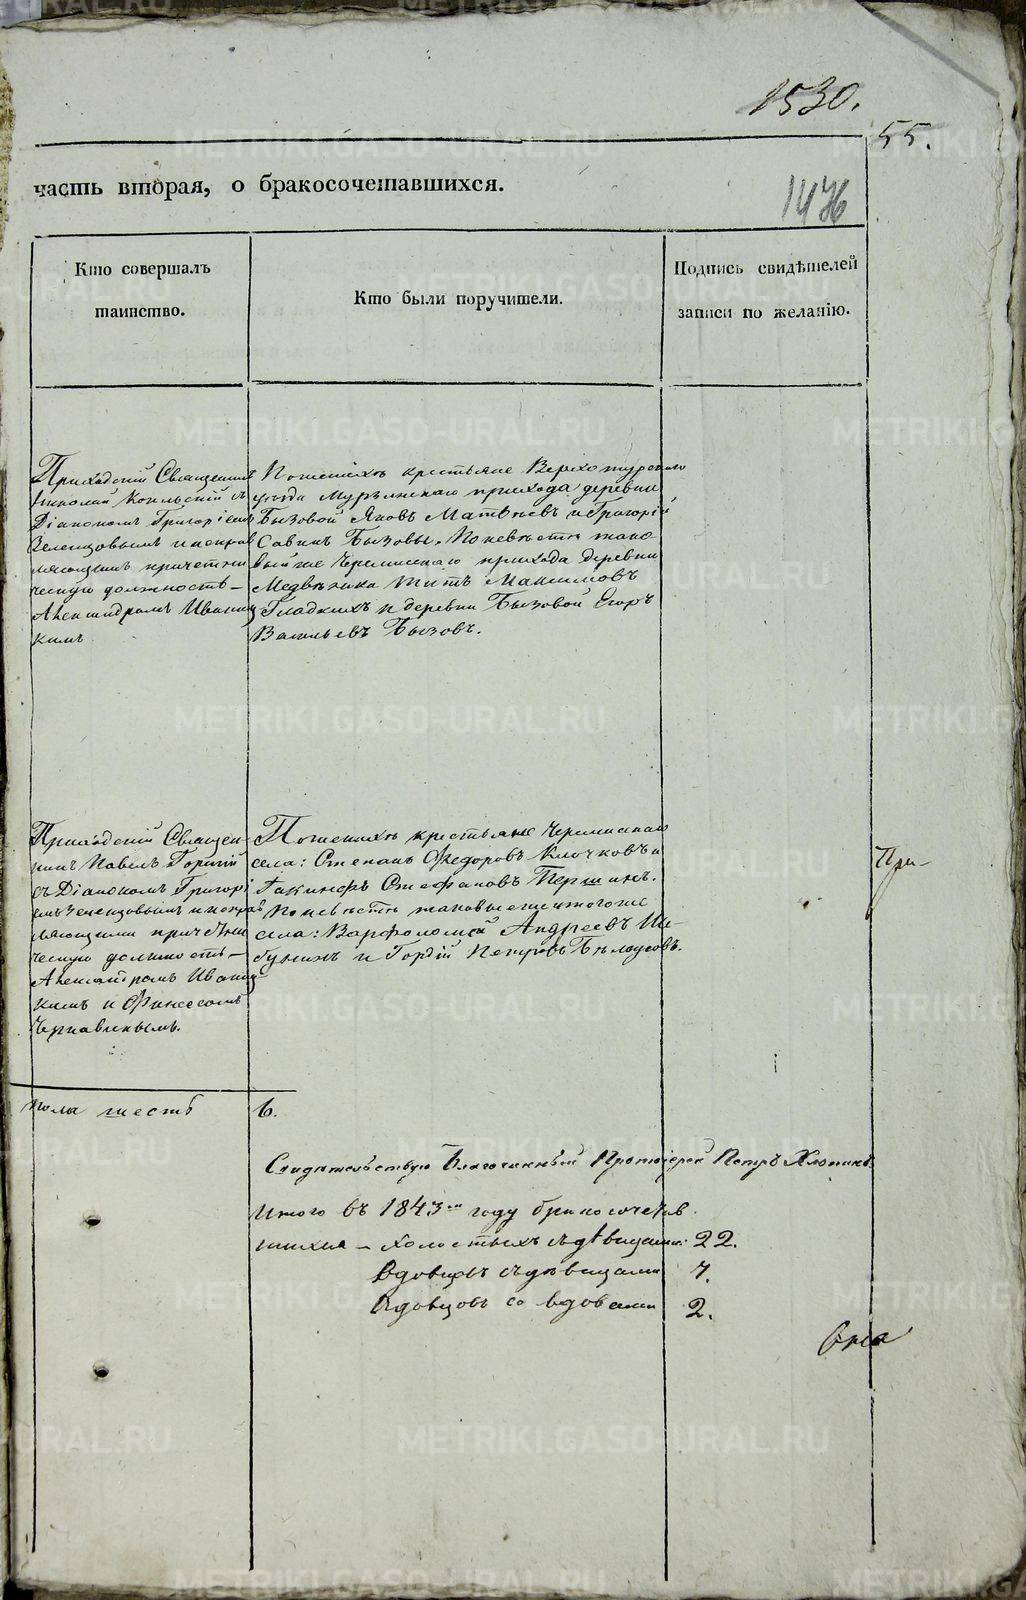 1530.
55.
часть вторая, о бракосочетавшихся.
1476
Кто совершалъ
таинство.
Кто были поручители.
Подпись свидѣтелей
записи по желанію.
Приходскій Священникъ
Николай Копельскій съ
Діакономъ Григоріемъ
Зеленцовымъ и исправ
ляющимъ причетни
ческую должность
Александромъ Иваниц
кимъ
По женихѣ крестьяне Верхотурскаго
уѣзда Мурзинскаго прихода деревни
Бызовой Яковъ Матвѣевъ и Григорій
Савинъ Бызовы. По невѣстѣ тако
выеже Черемисскаго прихода деревни
Медвѣдка Титъ Максимовъ
Гладкихъ и деревни Бызовой Егоръ
Васильевъ Бызовъ.
Приходскій Священ-
никъ Павелъ
съ Діакономъ Григорі
емъ Зеленцовымъ и исправ
ляющими причетни
ческую должность
Александромъ Иваниц
кимъ и Финеесомъ
Чернавинымъ.
По женихѣ крестьяне Черемисскаго
села: Степанъ Федоровъ Клочковъ и
Іакинфъ Стефановъ Першинъ.
По невѣстѣ таковыеже тогоже
села: Варфоломей Андреевъ
и Гордій Петровъ Бѣлоусовъ.
При-
пола шесть
6.
Свидѣтельствую Благочинный Протоіерей Петръ Хлопинъ
Итого въ 1843мъ году бракосочетав
шихся – холостыхъ съ дѣвицами 22.
Вдовцовъ съ дѣвицами 7.
Вдовцовъ со вдовами 2.
METRIKI.GASO-URAL.RU